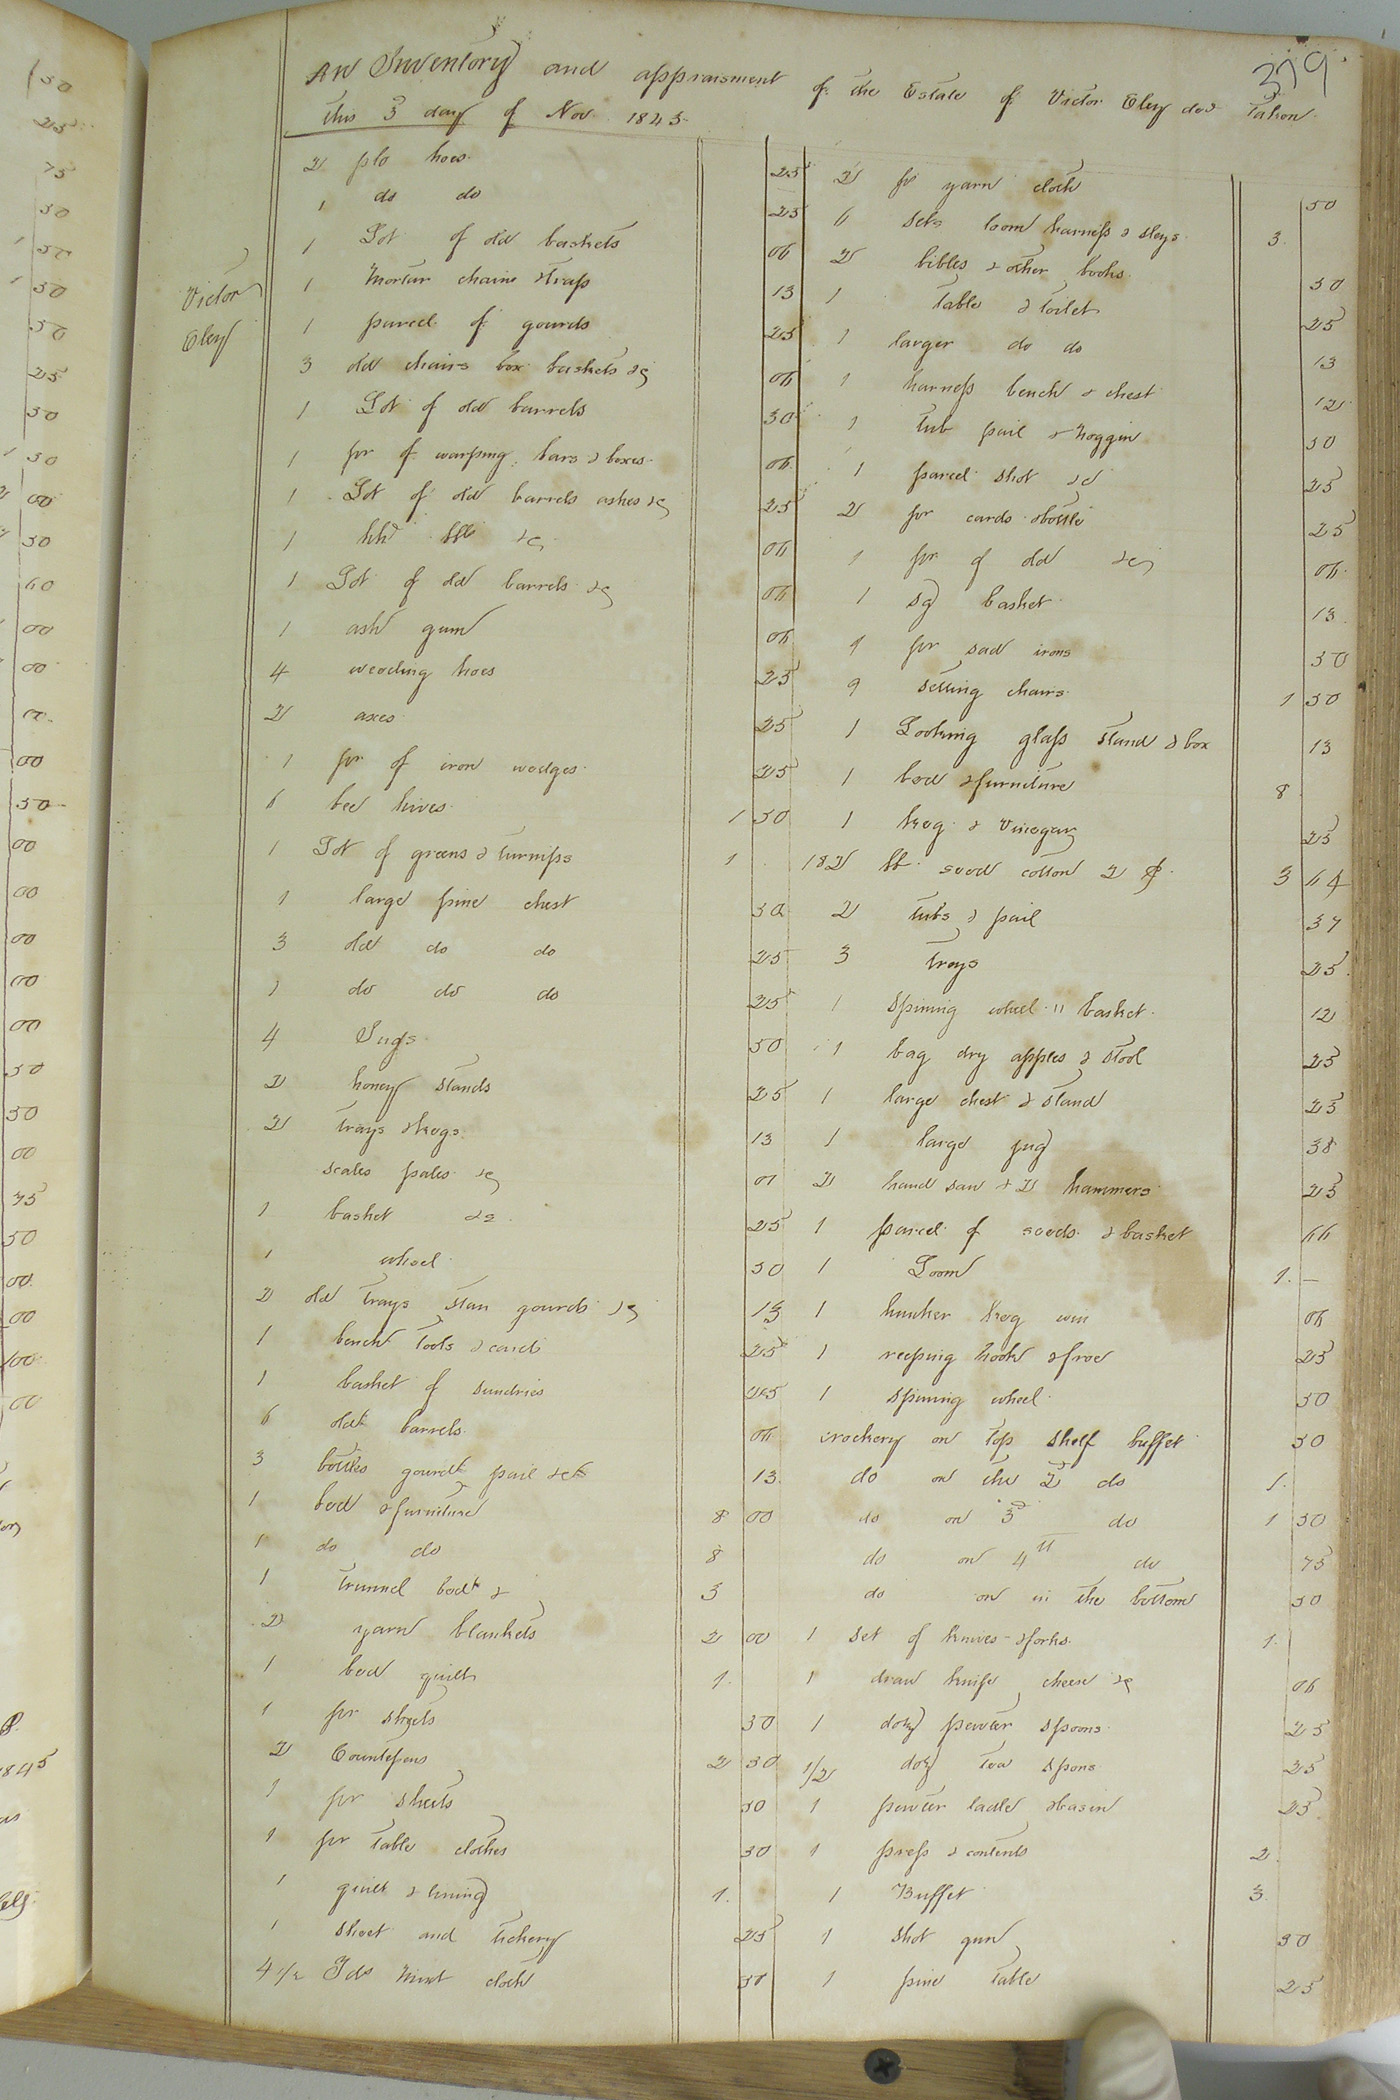 379
An Inventory and appraisment of the Estate of Victor Eley decd Taken
this 3 day of Nov. 1845
Victor
Eley
2 plo hoes 25
1 do do 25
1 Lot of old baskets 06
1 Mortar chains & traps 13
1 parcel of gourds 25
3 old chairs box baskets &c 06
1 Lot of old barrels 50
1 pr of warping bars & boxes 06
1 Lot of old barrels ashes &c 25
1 hhd &c 06
1 Lot of old barrels &c 06
1 ash gum 06
4 weeding hoes 25
2 axes 25
1 pr of iron wedges 25
6 bee hives 1 50
1 Lot of greens & turnips 1
1 large pine chest 50
3 old do do 25
1 do do do 25
4 Jugs 50
2 honey stands 25
2 trays & kegs 13
scales &c
1 basket &c 25
1 wheel 50
2 old trays gourds &c 13
1 bench tools & cards 25
1 basket of sundries 25
6 old barrels 06
3 bottles gourds pail &c 13
1 bed & furniture 8 00
1 do do 8
1 trunnel bed & 3
2 yarn blankets 2 00
1 bed quilt 1
1 pr sheets 50
2 Countepens 2 50
1 pr sheets 50
1 pr table clothes 50
1 quilt & lining 1
1 sheet and tickery 25
4 1/2 Yds mixt cloth
2 ps yarn cloth 50
6 sets loom harness & sleys 3
2 bibles & other books 50
1 table & toilet 25
1 larger do do 13
1 harness bench & chest 12
1 tub pail & noggin 50
1 parcel shot &c 25
2 pr cards & bottle 25
1 pr of old &c 06
1 sq basket 13
1 pr sad irons 50
9 setting chairs 1 50
1 Looking glass stand & box 13
1 bed & furniture 8
1 keg & vinegar 25
182 lb seed cotton 2 ¢ 3 64
2 tubs & pail 37
3 trays 25
1 spining wheel " basket 12
1 bag dry apples & stool 25
1 large chest & stand 25
1 large jug 38
2 hand saw & 2 hammers 25
1 parcel of seeds & basket 66
1 Loom 1 —
1 keg 06
1 reeping hook & froe 25
1 spining wheel 50
crockery on top shelf buffet 50
do on the 2d do 1
do on 3d do 1 50
do on 4th do 75
do on in the bottom 50
1 set of knives & forks 1
1 draw knife cheese &c 06
1 doz pewter spoons 25
1/2 doz tea spons 25
1 pewter ladle & basin 25
1 press & contents 2
1 Buffet 3
1 shot gun 50
1 pine table 25